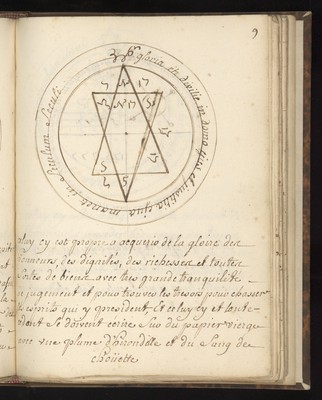 9
gloria et divitiæ in domo eius et justitia ejus manet in sæculum sæculi
luy cy est propre a acquerir de la gloire des
honneurs, des dignités, des richesses et toutes
sortes de biens avec tres grande tranquilité
jugement et pour trouver les tresors pour chasser
esprits qui y president. Et celuy cy et toute
se doivent ecrire sur du papier vierge
avec une plume d'hirondelle et du sang de
choüette